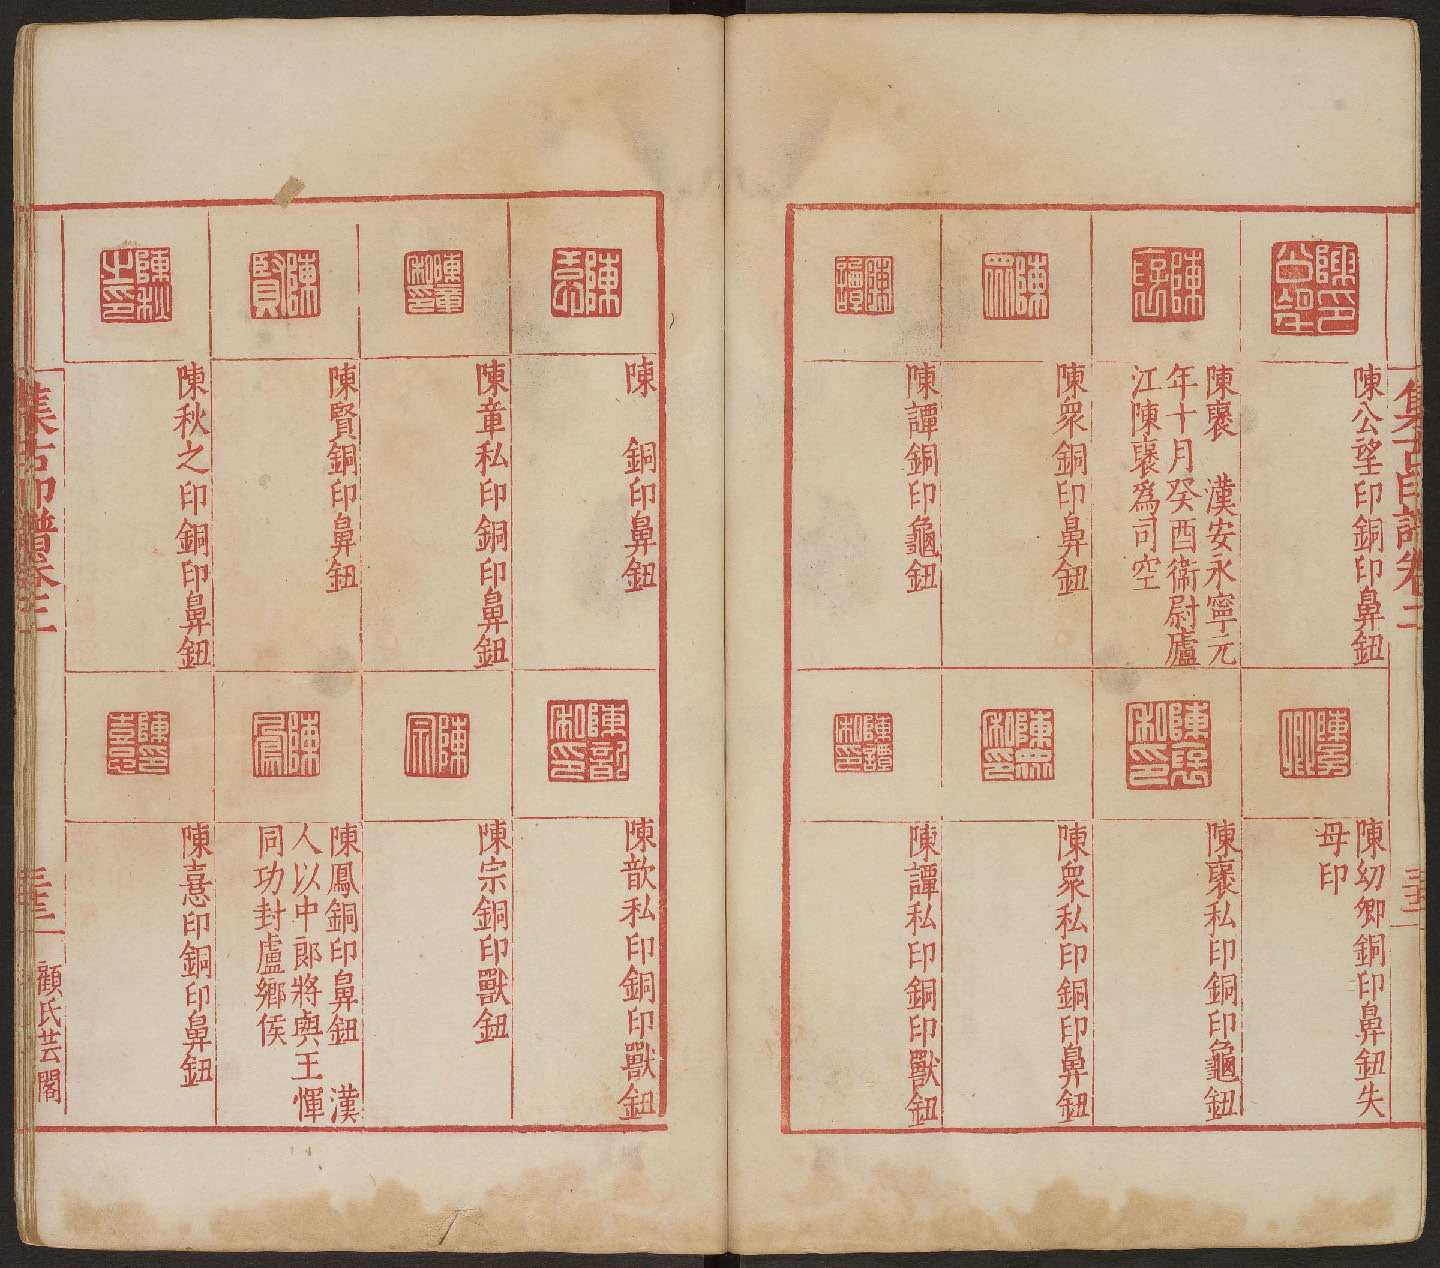 集古印譜卷二
陳公望印銅印鼻鈕
陳襃 漢安永寧元
年十月癸酉衞尉廬
江陳襃爲司空
陳衆銅印鼻鈕
陳譚銅印龜鈕
陳幼卿銅印鼻鈕失
母印
陳襃私印銅印龜鈕
陳衆私印銅印鼻鈕
陳譚私印銅印獸鈕
陳 銅印鼻鈕
陳章私印銅印鼻鈕
陳賢銅印鼻鈕
陳秋之印銅印鼻鈕
陳歆私印銅印獸鈕
陳宗銅印獸鈕
陳鳳銅印鼻鈕 漢
人以中郎將與王惲
同功封盧鄉侯
陳憙印銅印鼻鈕
顧氏芸閣